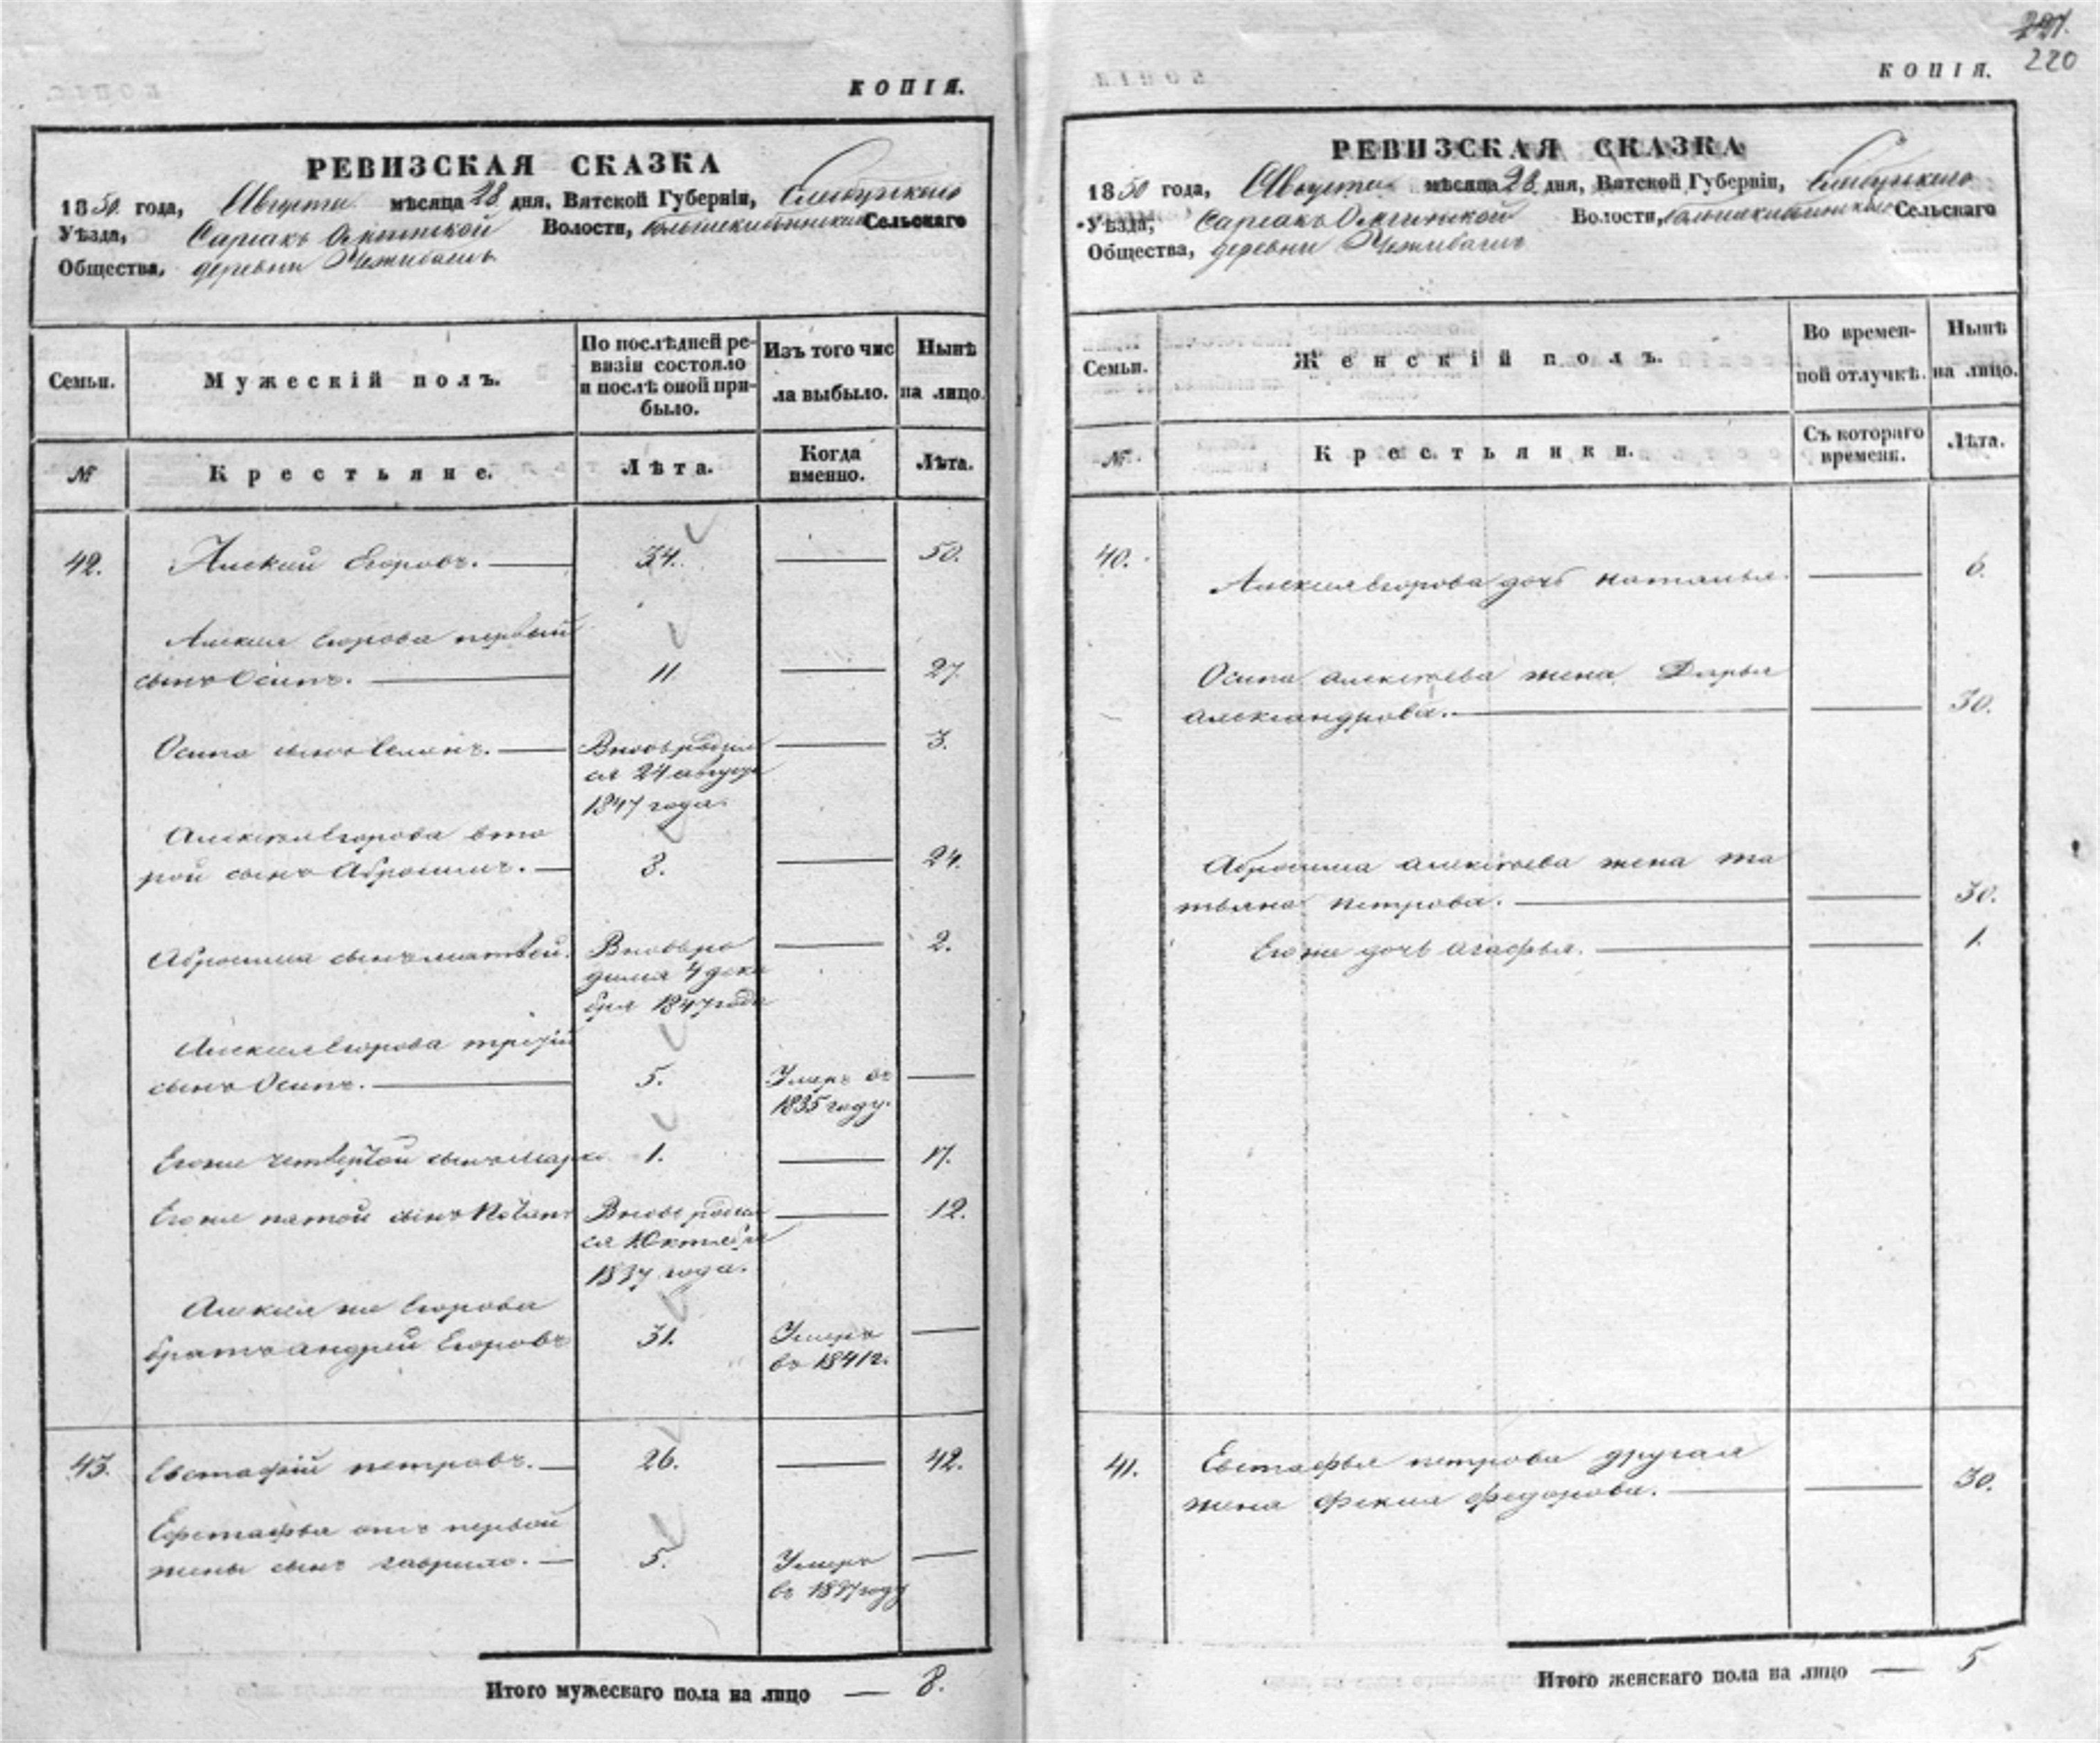 КОПІЯ.
РЕВИЗСКАЯ СКАЗКА
1850 года, Августа мѣсяца 28 дня, Вятской Губерніи, Елабугскаго
Уѣзда, Волости, Сельскаго
Общества, деревни
Семьи.
Мужескій полъ.
По послѣдней ре-
визіи состояло
и послѣ оной при-
было.
Изъ того чис
ла выбыло.
Нынѣ
на лицо.
№
Крестьяне.
Лѣта.
Когда
именно.
Лѣта.
42. Алексѣй Егоровъ. — 34. — 50.
Алексея Егорова первый
сынъ Осипъ. — 11 — 27.
Осипа сынъ Семенъ. — Вновь родил — 3.
ся 24 августа
1847 года.
Алексея Егорова вто
рой сынъ Абросимъ. — 8. — 24.
Абросима сынъ Матвей. Вновь ро — 2.
дился 4 дека
бря 1847 года
Алексея Егорова третий
сынъ Осипъ. — 5. Умеръ въ —
1835 году.
Его же четвертой сынъ Марко 1. — 17.
Его же пятой сынъ Вновь родил — 12.
ся Октября
1837 года.
Алексея же Егорова
братъ андрей Егоровъ 31. Умеръ —
въ 1841 г.
43. Евстафій петровъ. — 26. — 42.
Ефстафья отъ первой
жены сынъ гаврило. — 5. Умеръ —
въ 1837 году
Итого мужескаго пола на лицо — 8.
221.
220
КОПІЯ.
РЕВИЗСКАЯ СКАЗКА
1850 года, Августа мѣсяца 28 дня, Вятской Губерніи, Елабугскаго
Уѣзда, Волости, Сельскаго
Общества, деревни
Семьи.
Женскій полъ.
Во времен-
ной отлучкѣ.
Нынѣ
на лицо.
№
Крестьянки.
Съ котораго
времени.
Лѣта.
40. Алексея Егорова дочь наталья. — 6.
Осипа алексеева жена Дарья
александрова. — — 30.
Абросима алексеева жена та
тьяна петрова. — — 30.
Его же дочь агафья. — — 1.
41. Евстафья петрова другая
жена фекла федорова. — — 30.
Итого женскаго пола на лицо — 5